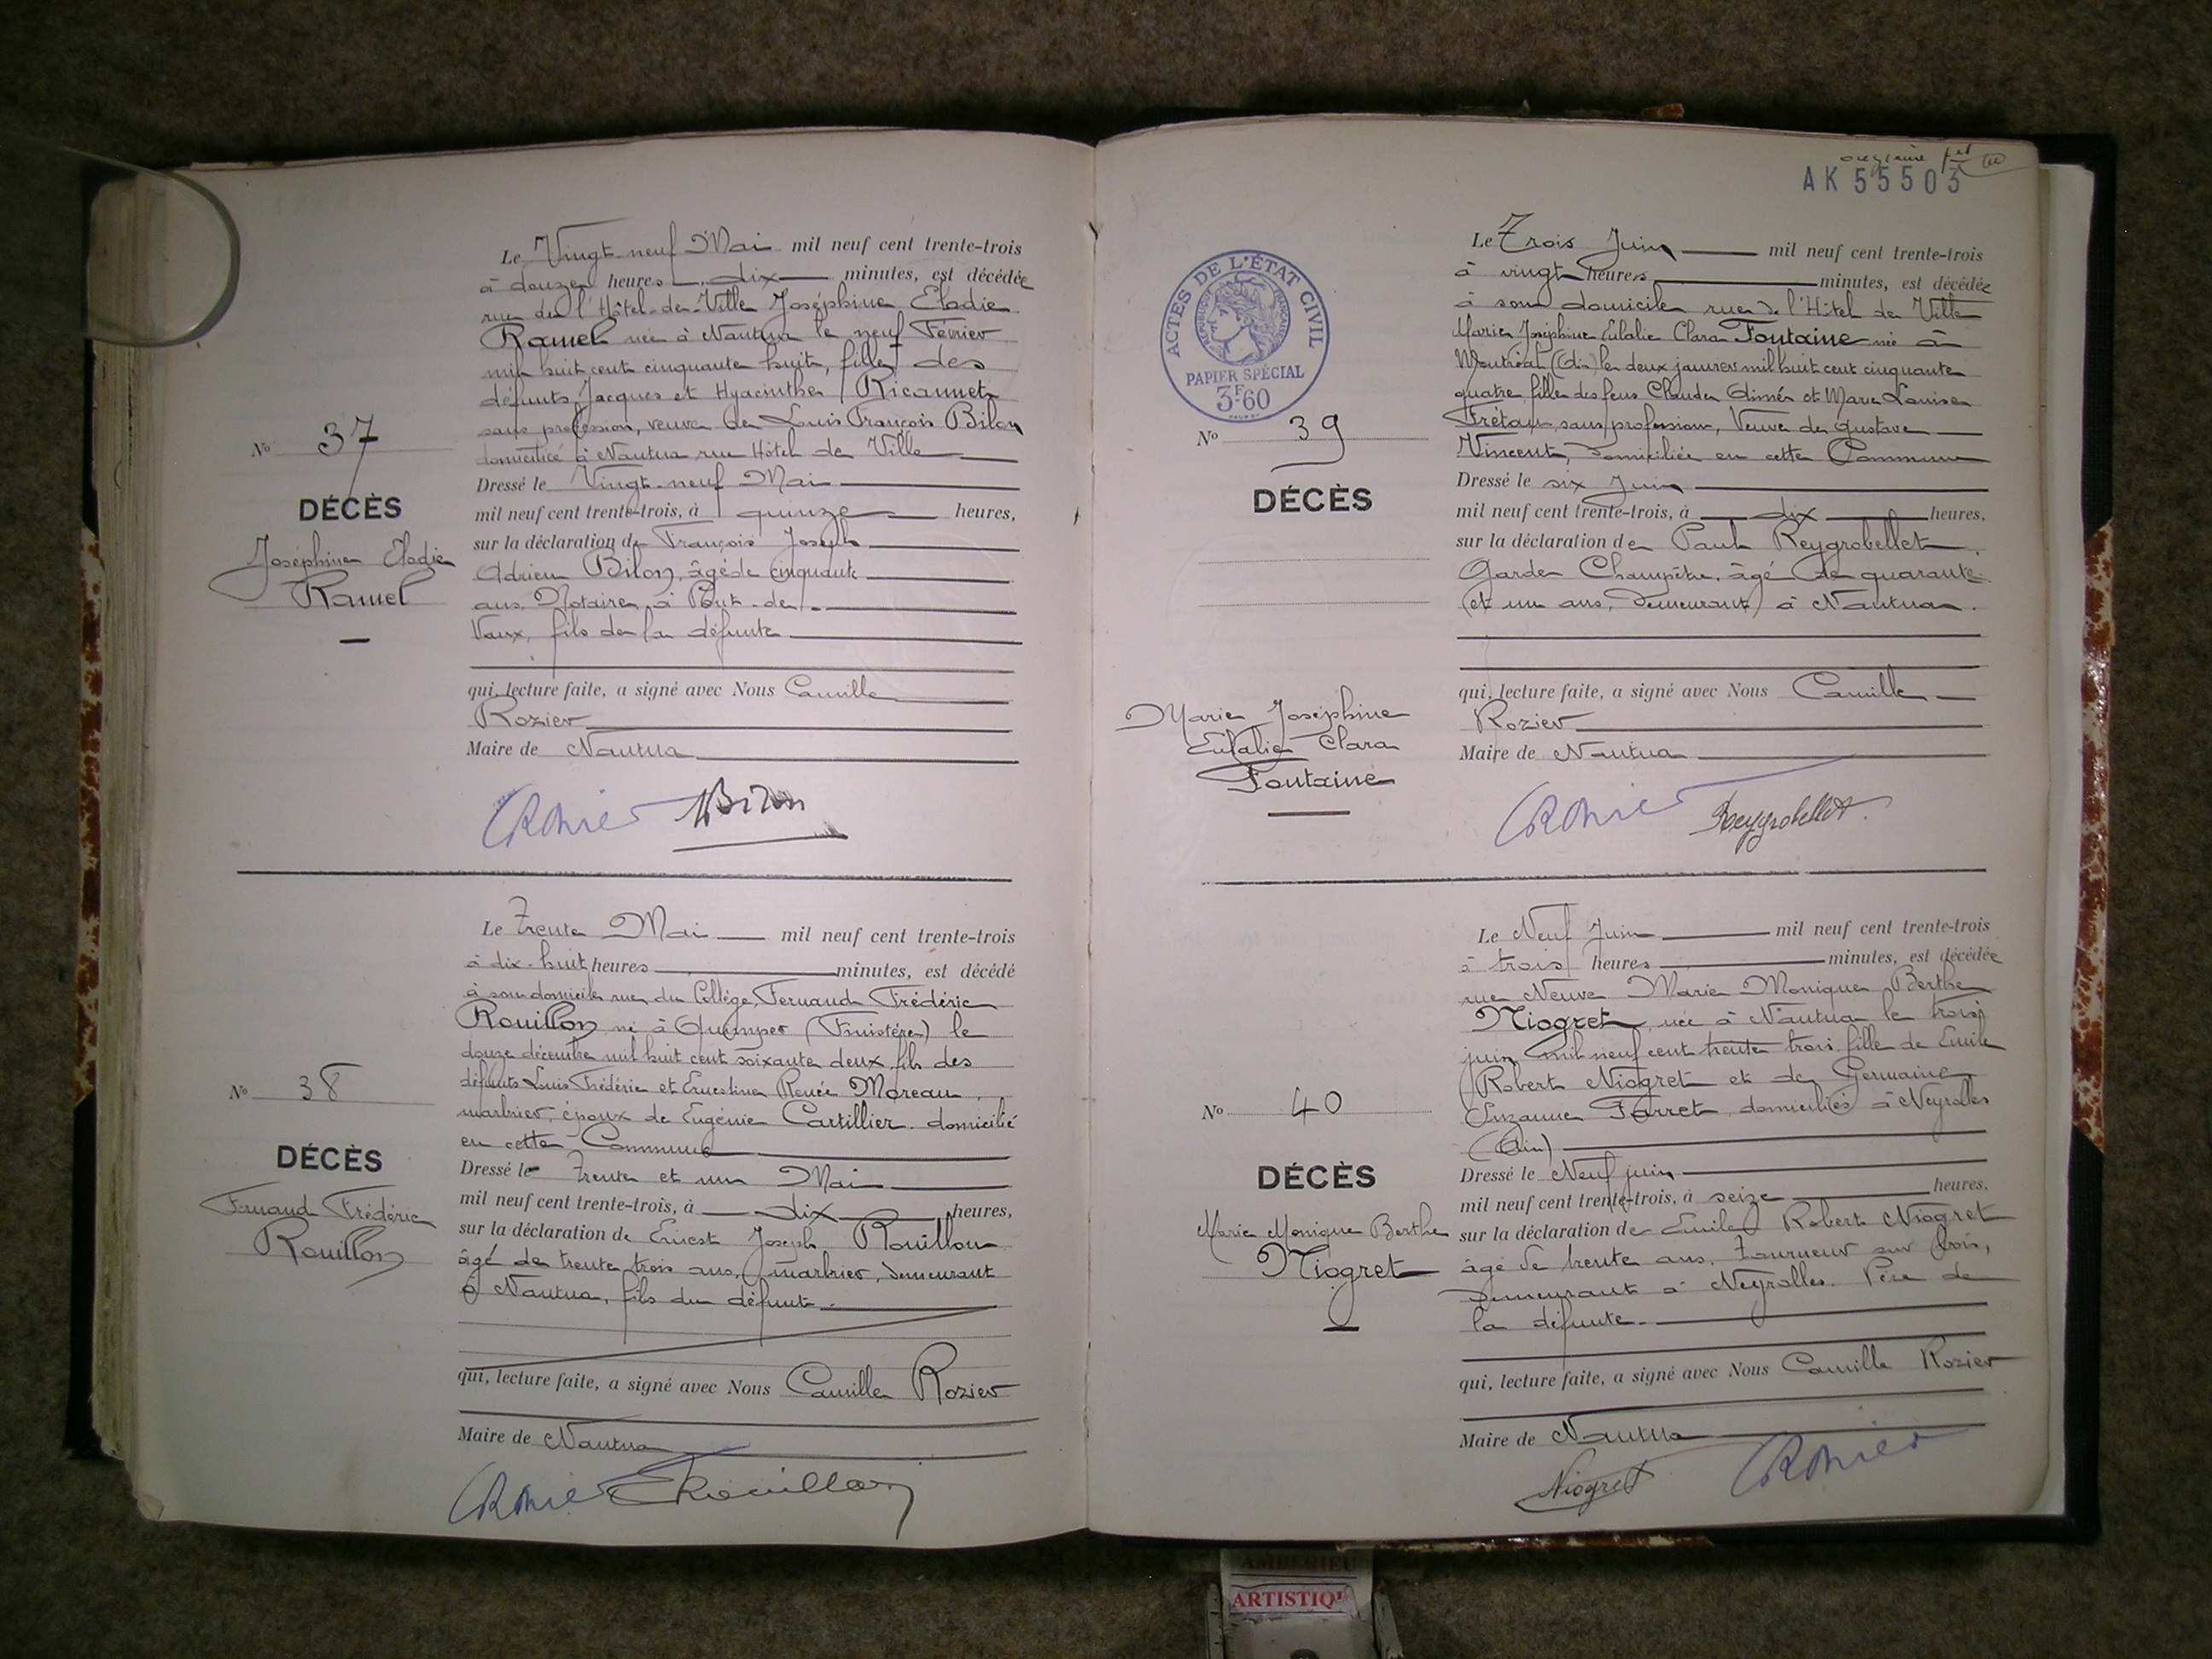 Le Vingt-neuf Mai mil neuf cent trente-trois
à douze heures dix minutes, est décédée
rue de l'Hôtel-de-Ville Joséphine Elodie
Ramel née à Nantua le neuf Février
mil huit cent cinquante huit, fille des
défunts Jacques et Hyacinthe Ricannet
sans profession, veuve de Louis François Bilon
domicilié à Nantua rue Hôtel de Ville
No 37
DÉCÈS
Joséphine Elodie
Ramel
Dressé le Vingt-neuf Mai
mil neuf cent trente-trois, à quinze heures,
sur la déclaration de François Joseph
Adrien Bilon, âgé de cinquante
ans, Notaire, à Pont-de-
Vaux, fils de la défunte
qui, lecture faite, a signé avec Nous Camille
Rozier
Maire de Nantua
CRozier Bilon
Le Trente Mai mil neuf cent trente-trois
à dix-huit heures minutes, est décédé
à son domicile rue du Collège, Fernand Frédéric
Rouillon né à Quimper (Finistère) le
douze décembre mil huit cent soixante deux, fils des
défunts Louis Frédéric et Ernestine Renée Moreau
marbrier, époux de Eugénie Cartillier, domicilié
en cette Commune
No 38
DÉCÈS
Fernand Frédéric
Rouillon
Dressé le Trente et un Mai
mil neuf cent trente-trois, à dix heures,
sur la déclaration de Ernest Joseph Rouillon
âgé de trente trois ans, marbrier, demeurant
à Nantua, fils du défunt.
qui, lecture faite, a signé avec Nous Camille Rozier
Maire de Nantua
CRozier ERouillon
AK 55503
ACTES DE L'ÉTAT CIVIL
PAPIER SPÉCIAL
3F60
Le Trois Juin mil neuf cent trente-trois
à vingt heures minutes, est décédée
à son domicile rue de l'Hôtel de Ville
Marie Joséphine Eulalie Clara Fontaine née à
Montréal (Ain) le deux janvier mil huit cent cinquante
quatre fille des feus Claude Aimé et Marie Louise
Frétaux, sans profession, Veuve de Gustave
Vincent, domiciliée en cette Commune
No 39
DÉCÈS
Marie Joséphine
Eulalie Clara
Fontaine
Dressé le six Juin
mil neuf cent trente-trois, à dix heures,
sur la déclaration de Paul Reygrobellet,
Garde Champêtre, âgé de quarante
et un ans, demeurant à Nantua.
qui, lecture faite, a signé avec Nous Camille
Rozier
Maire de Nantua
CRozier Reygrobellet
Le Neuf Juin mil neuf cent trente-trois
à trois heures minutes, est décédée
rue Neuve Marie Monique Berthe
Niogret, née à Nantua le trois
juin mil neuf cent trente trois fille de Emile
Robert Niogret et de Germaine
Suzanne Farret domiciliés à Neyrolles
(Ain)
No 40
DÉCÈS
Marie Monique Berthe
Niogret
Dressé le Neuf juin
mil neuf cent trente-trois, à seize heures,
sur la déclaration de Emile Robert Niogret
âgé de trente ans, Tourneur sur bois,
demeurant à Neyrolles. Père de
la défunte.
qui, lecture faite, a signé avec Nous Camille Rozier
Maire de Nantua
Niogret CRozier
AMBERIEU
ARTISTIQU